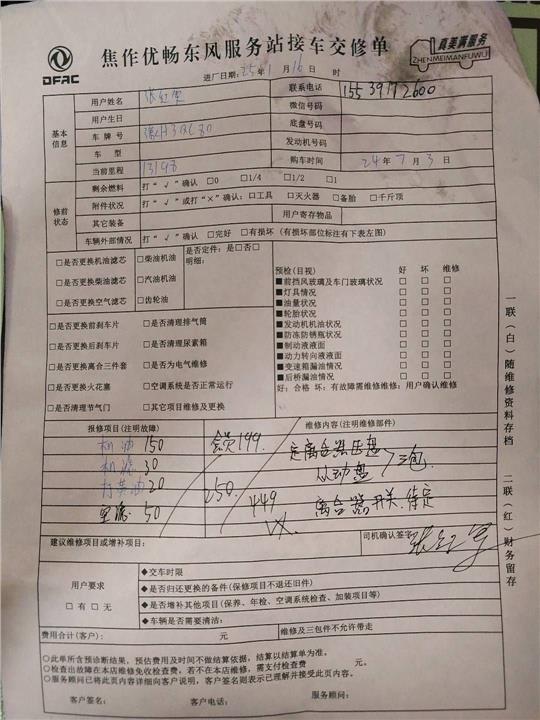 DFAC
焦作优畅东风服务站接车交修单
真美满服务
ZHENMEIMANFUWU
进厂日期：25年1月16日 时
基本信息
用户姓名 联系电话 15539172600
用户生日 微信号码
车牌号 底盘号码
车型 发动机号码
当前里程 13198 购车时间 24年7月3日
修前状态
剩余燃料 打“√”确认 □0 □1/4 □1/2 □1
附件状况 打“√”或打“×”确认：□工具 □灭火器 □备胎 □千斤顶
其它装备 用户寄存物品
车辆外部情况 打“√”确认 □完好 □有损坏（有损坏部位标注有下表左图）
□是否更换机油滤芯 □柴油机油 是否定件：是□否□
明细：
□是否更换柴油滤芯 □汽油机油
□是否更换空气滤芯 □齿轮油
预检(目视) 好 坏 维修
■前挡风玻璃及车门玻璃状况 □ □ □
■灯具情况 □ □ □
■油量状况 □ □ □
■轮胎状况 □ □ □
■发动机机油状况 □ □ □
■防冻防锈瓶状况 □ □ □
■制动液液面 □ □ □
■动力转向液液面 □ □ □
■变速箱漏油情况 □ □ □
■后桥漏油情况 □ □ □
好：合格 坏：有故障需维修维修：用户确认维修
□是否更换前刹车片 □是否清理排气筒
□是否更换后刹车片 □是否清理尿素箱
□是否更换离合三件套 □是否为电气维修
□是否更换火花塞 □空调系统是否正常运行
□是否清理节气门 □其它项目维修及更换
报修项目(注明故障) 维修内容(注明维修部件)
机油 150 199 定离合器压盘
机滤 30 从动盘 三包
20 250 449 离合器开关 待定
50
建议维修项目或增补项目： 司机确认签字
用户要求
□有 □无
◆交车时限
◆是否归还更换的备件（保修项目不退还旧件）
◆是否增补其他项目（保养、年检、空调系统检查、加装项目等）
◆车辆是否需要清洁：
费用合计(客户)： 元 维修及三包件不允许带走
○此单所含预诊断结果，预估费用及时间不做结算依据，结算以结算单为准。
○检查出故障在本店维修免收检查费，若不在本店维修，需支付检查费 元。
○服务顾问已将此页内容详细向客户说明，客户签名则表示已理解并接受此页内容。
客户签名： 客户电话： 服务顾问：
一联（白）随维修资料存档 二联（红）财务留存